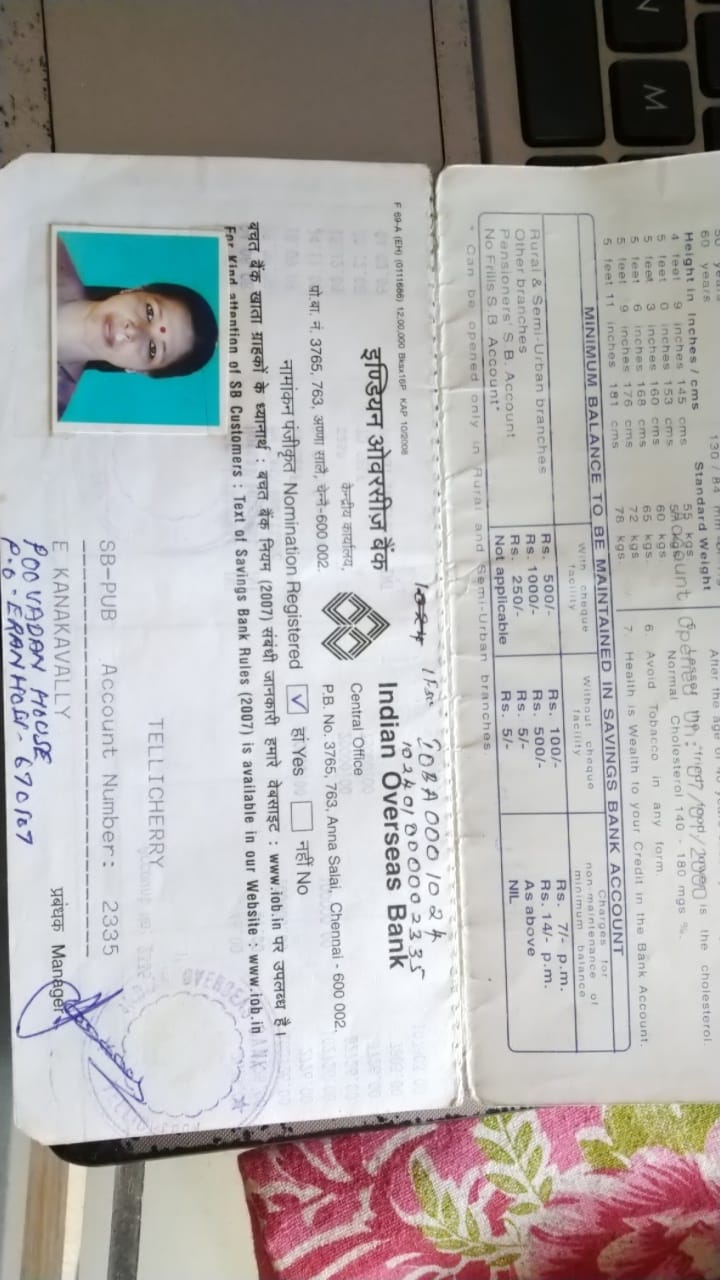 60 years 130 / 84
Height in Inches / cms Standard Weight
4 feet 9 inches 145 cms 55 kgs.
5 feet 0 inches 153 cms
5 feet 3 inches 160 cms 60 kgs
5 feet 6 inches 168 cms 65 kgs.
5 feet 9 inches 176 cms 72 kgs
5 feet 11 inches 181 cms 78 kgs
After the age of
is the cholesterol.
Normal Cholesterol 140 - 180 mgs %.
6. Avoid Tobacco in any form.
7. Health is Wealth to your Credit in the Bank Account.
Account Opened On:
MINIMUM BALANCE TO BE MAINTAINED IN SAVINGS BANK ACCOUNT
With cheque facility Without cheque facility Charges for non-maintenance of minimum balance
Rural & Semi-Urban branches Rs. 500/- Rs. 100/- Rs. 7/- p.m.
Other branches Rs. 1000/- Rs. 500/- Rs. 14/- p.m.
Pensioners' S.B. Account Rs. 250/- Rs. 5/- As above
No Frills S.B. Account* Not applicable Rs. 5/- NIL
* Can be opened only in Rural and Semi-Urban branches.
IOBA0001024
102401000002335
F 69-A (EH) (0111686) 12,00,000 Bksx16P KAP 10/2008
इण्डियन ओवरसीज बैंक Indian Overseas Bank
केन्द्रीय कार्यालय, Central Office
पो.बा. नं. 3765, 763, अण्णा सालै, चेन्नै-600 002. P.B. No. 3765, 763, Anna Salai, Chennai - 600 002.
नामांकन पंजीकृत Nomination Registered ✓ हां Yes नहीं No
बचत बैंक खाता ग्राहकों के ध्यानार्थ : बचत बैंक नियम (2007) संबंधी जानकारी हमारे वेबसाइट : www.iob.in पर उपलब्ध है।
For Kind attention of SB Customers : Text of Savings Bank Rules (2007) is available in our Website : www.iob.in
TELLICHERRY
SB-PUB Account Number: 2335
E KANAKAVALLY
प्रबंधक Manager
POOVADAN HOUSE
P.O - ERANHOLI - 670107